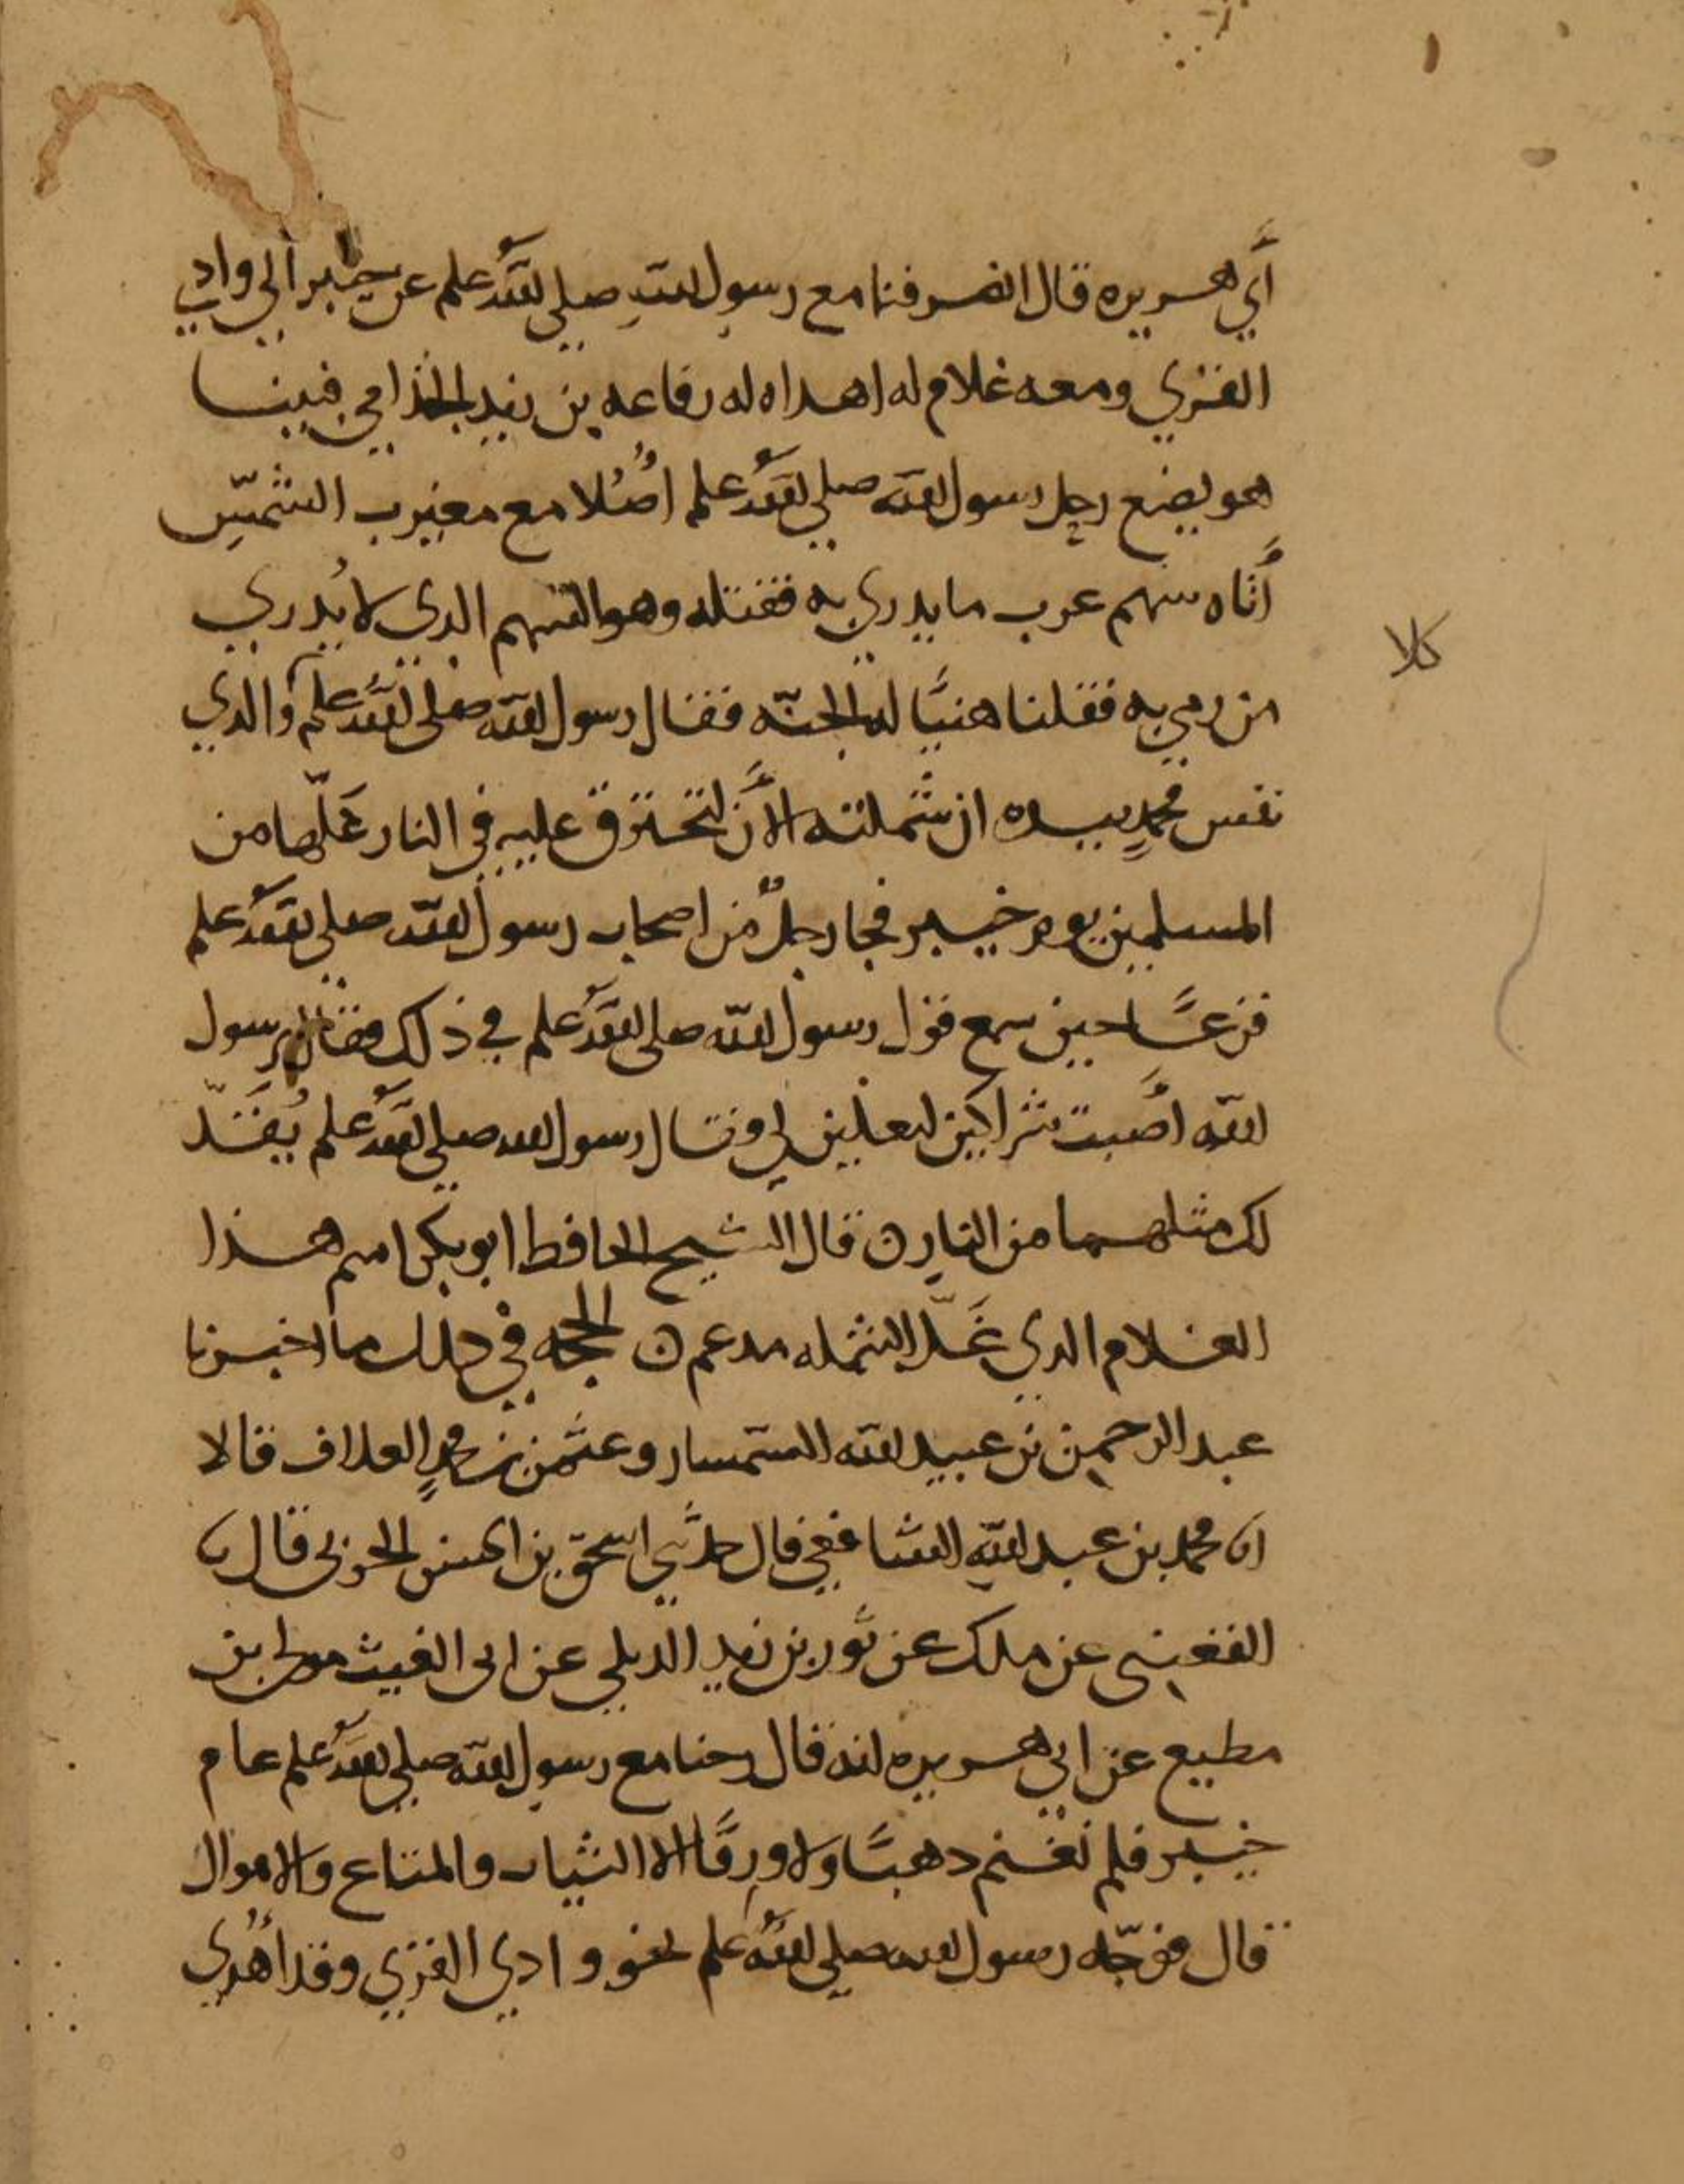 أبي هريره قال انصرفنا مع رسول الله صلى الله علىه وسلم عن خيبر الي وادي
القري ومعه غلام له اهداه له رفاعه بن زيد الجذامي فبينا
هو يضع رحل رسول الله صلي الله عليه وسلم اصُلا مع مغيرب الشمس
أتاه سهم غرب ما يدري به فقتله وهو السهم الدي لا يُدري
من رمي به فقلنا هنيًا له الجنّه فقال رسول الله صلى الله عليه وسلم والدي
نفس محمدٍ بيده ان شملته الأن لتحترق عليه في النار غلّها من
المسلمين يوم خيبر فجا رجلٌ من اصحاب رسول الله صلى الله عليه وسلم
فزعًا حين سمع قول رسول الله صلى الله عليه وسلم في ذلك فقال يرسول
الله أصبت شراكين لنعلين لي وقال رسول الله صلي الله عليه وسلم يُقَدّ
لك مثلهما من النار ن قال الشيخ الحافظ ابو بكر اسم هذا
الغلام الدي غَلّ الشمله مدعم ن الحجه في ذلك ما اخبرنا
عبد الرحمن بن عبيد الله السمسار وعثمن بن محمدٍ العلاف قالا
انا محمد بن عبد الله الشافعي قال حدثني اسحق بن الحسن الحربي قال نا
القعنبي عن ملك عن ثور بن زيد الديلي عن ابي الغيث مولى بن
مطيع عن ابي هريره انه قال رحنا مع رسول الله صلي الله عليه وسلم عام
خيبر فلم نغنم دهبًا ولا ورِقًا الا الثياب والمتاع والاموال
قال فوجّه رسول الله صلي الله عليه وسلم نحو وادي القري وقد أُهدي
كلا